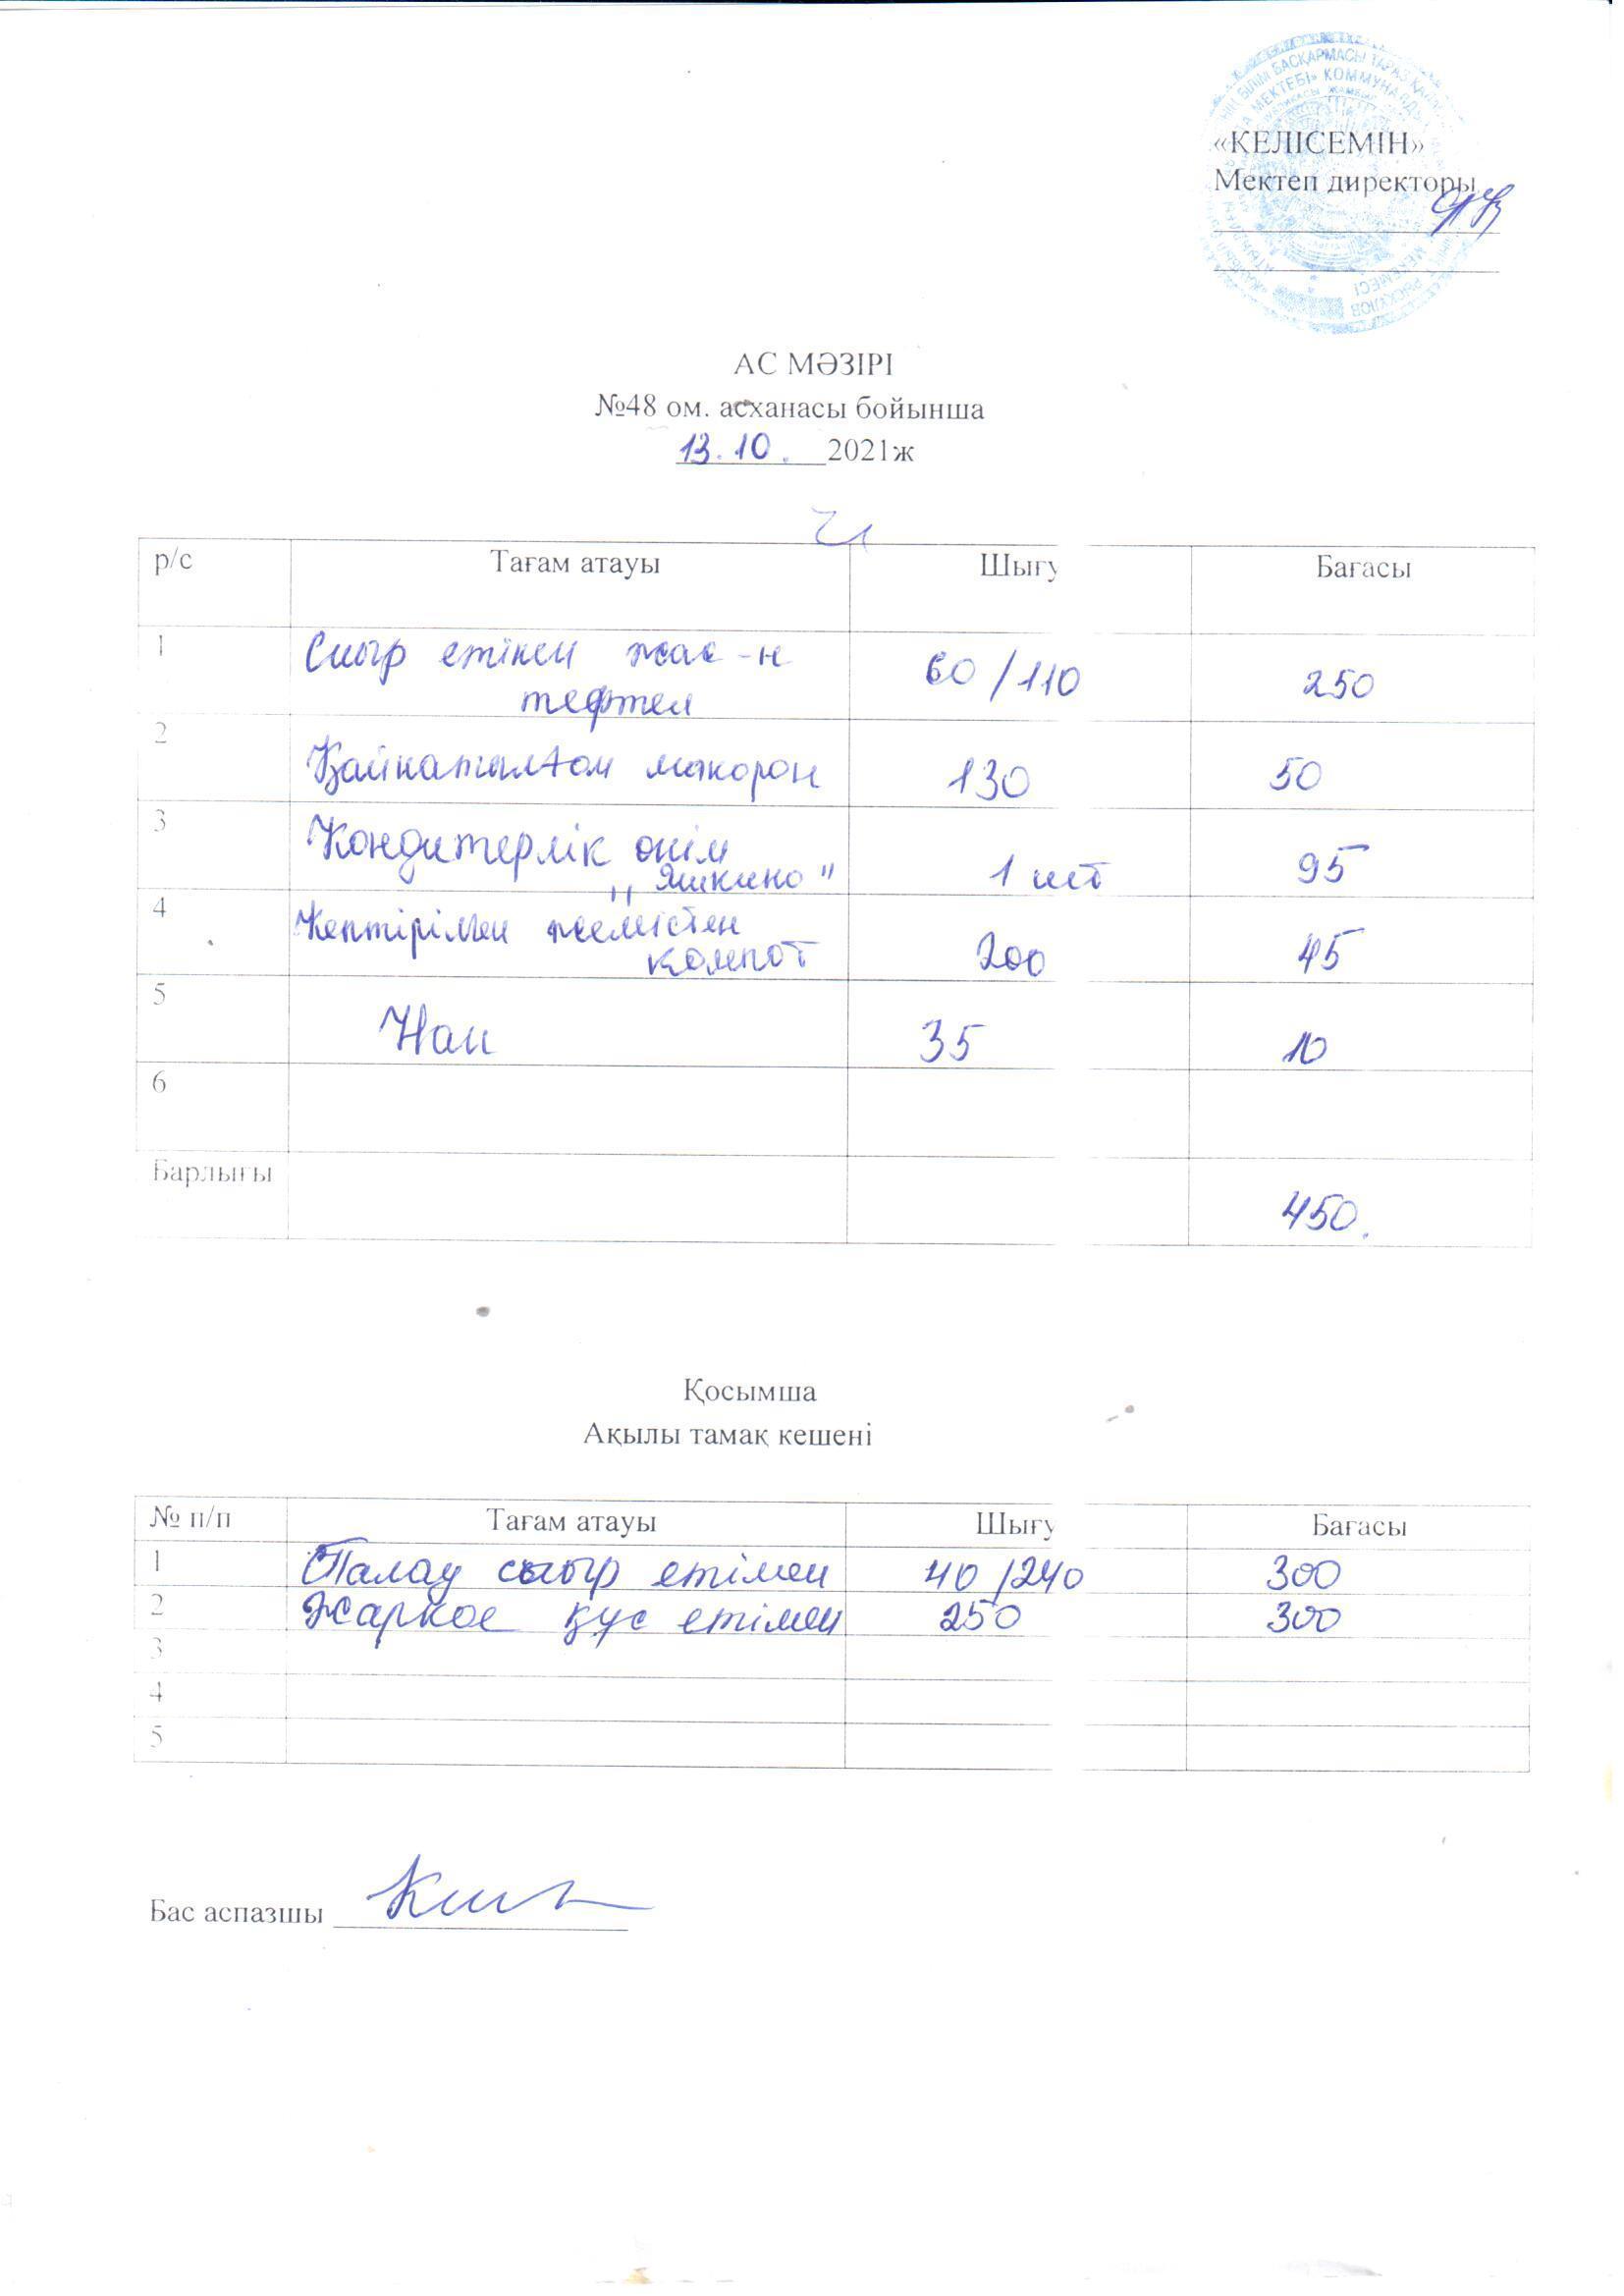 «КЕЛІСЕМІН»
Мектеп директоры
АС МӘЗІРІ
№48 ом. асханасы бойынша
13.10. 2021ж
р/с Тағам атауы Шығу Бағасы
1 Сиыр етінен жас-н
тефтел 60/110 250
2 Қайнатылған макорон 130 50
3 Кондитерлік өнім
„Яшкино" 1 шт 95
4 Кептірімен жемістен
компот 200 45
5 Нан 35 10
6
Барлығы 450.
Қосымша
Ақылы тамақ кешені
№ п/п Тағам атауы Шығу Бағасы
1 Палау сиыр етімен 40/240 300
2 Жаркое құс етімен 250 300
3
4
5
Бас аспазшы